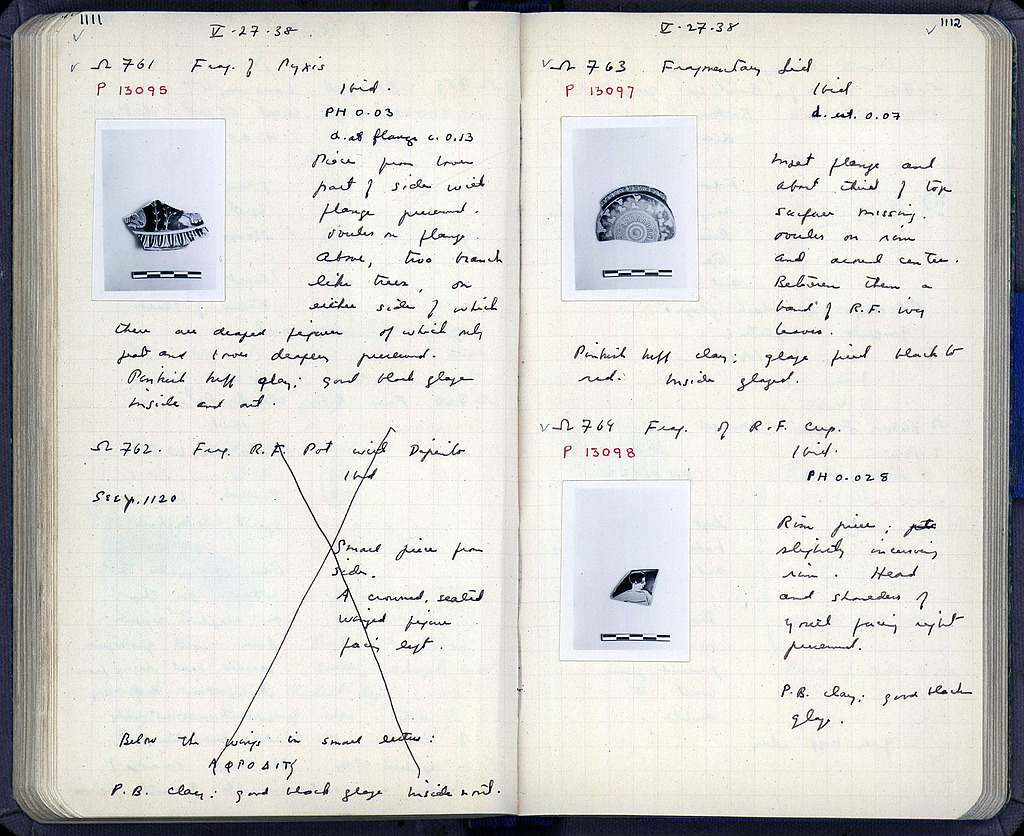 1111
V-27-38
Ω 761 Frag. of Pyxis
P 13095
Ibid.
PH 0.03
d. at flange c. 0.13
Piece from lower
part of side with
flange preserved.
Ovules on flange.
Above, two branch
like trees, on
either side of which
there are draped figures of which only
feet and lower drapery preserved.
Pinkish buff clay; good black glaze
inside and out.
Ω 762. Frag. R.F. Pot with Dipinto
Ibid
See p. 1120
Small piece from
side.
A crowned, seated
winged figure
facing left.
Below the wings in small letters:
P.B. clay; good black glaze inside & out.
1112
V-27-38
Ω 763 Fragmentary Lid
P 13097
Ibid
d. est. 0.07
Inset flange and
about third of top
surface missing.
Ovules on rim
and around center.
Between them a
band of R.F. ivy
leaves.
Pinkish buff clay; glaze fired black to
red. Inside glazed.
Ω 764 Frag. of R.F. Cup.
P 13098
Ibid.
PH 0.028
Rim piece;
slightly incurving
rim. Head
and shoulders of
youth facing right
preserved.
P.B. clay; good black
glaze.